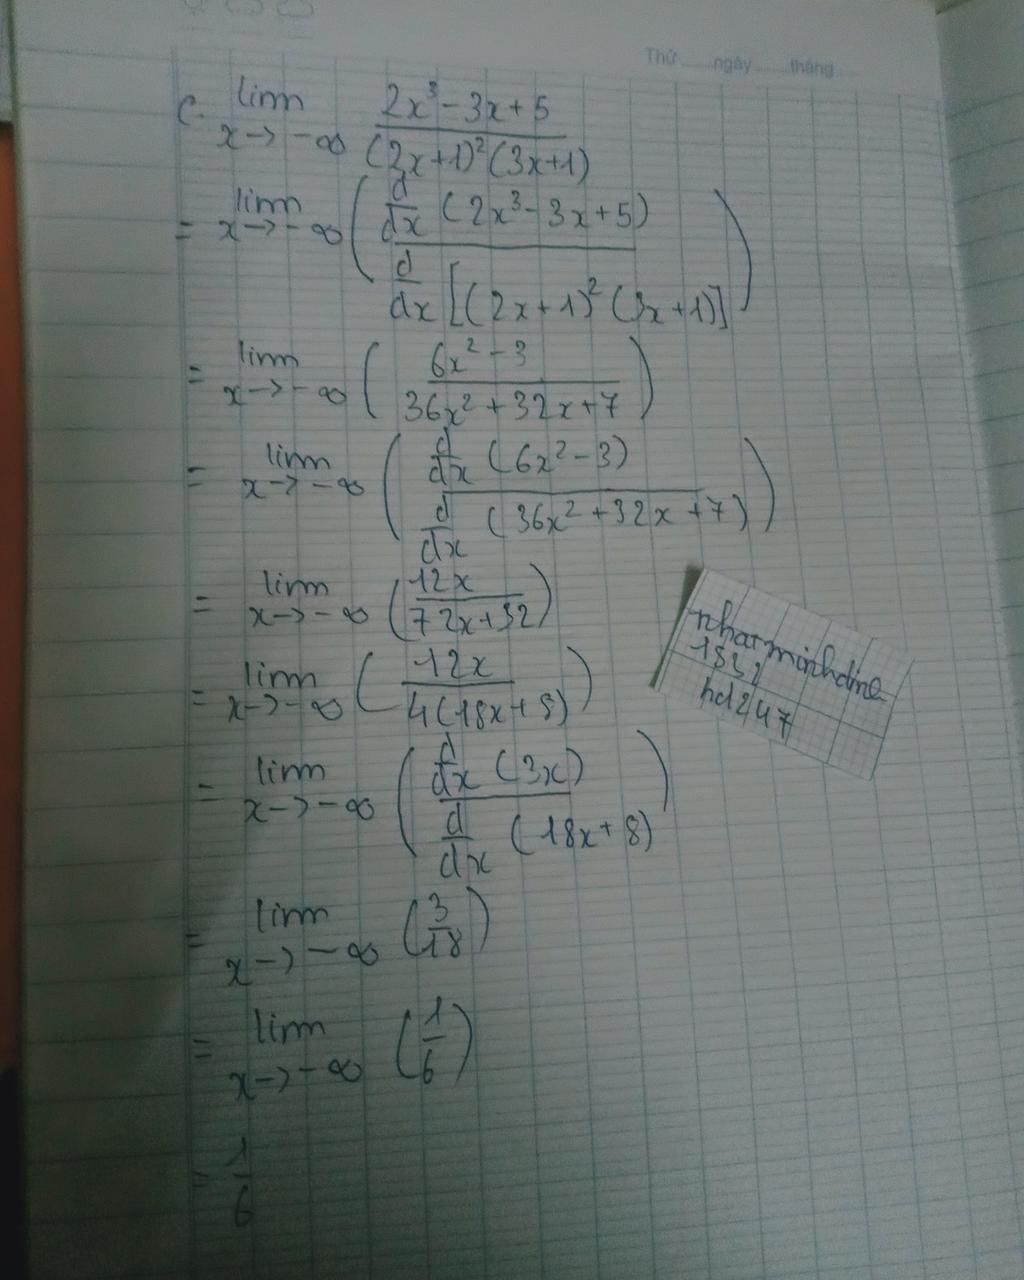 Thứ ngày tháng
c. lim x→-∞ (2x³ - 3x + 5)/((2x+1)²(3x+1))
= lim x→-∞ (d/dx (2x³ - 3x + 5) / d/dx [(2x+1)²(3x+1)])
= lim x→-∞ ((6x² - 3)/(36x² + 32x + 7))
= lim x→-∞ (d/dx (6x² - 3) / d/dx (36x² + 32x + 7))
= lim x→-∞ (12x/(72x+32))
= lim x→-∞ (12x/4(18x+8))
= lim x→-∞ (d/dx (3x) / d/dx (18x+8))
= lim x→-∞ (3/18)
= lim x→-∞ (1/6)
= 1/6
hd247